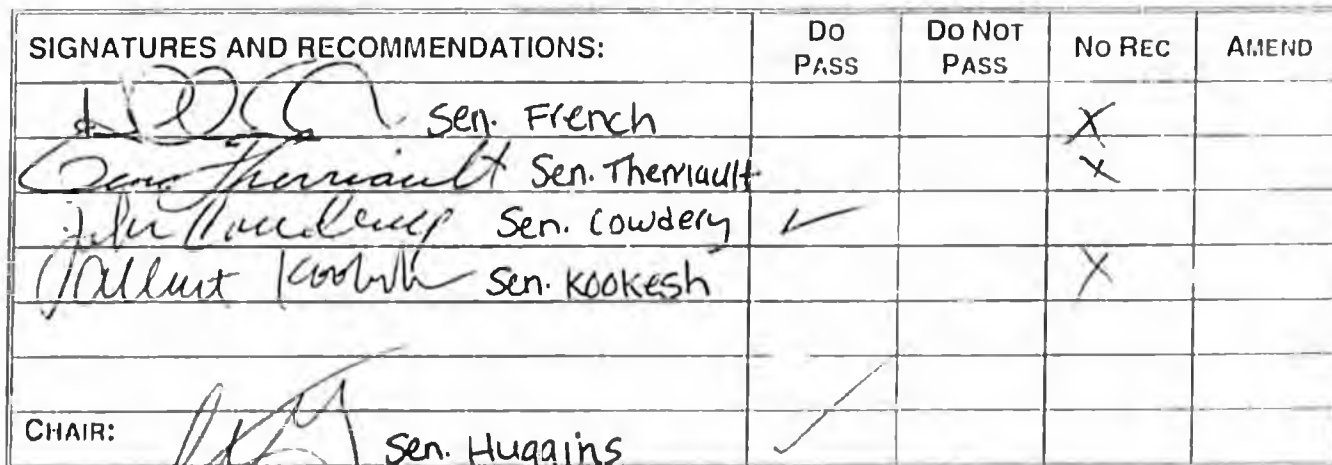 SIGNATURES AND RECOMMENDATIONS: DO PASS DO NOT PASS NO REC AMEND
Sen. French X
Gene Therriault Sen. Therriault X
John Cowdery Sen. Cowdery ✓
Albert Kookesh Sen. Kookesh X
CHAIR: Sen. Huggins ✓